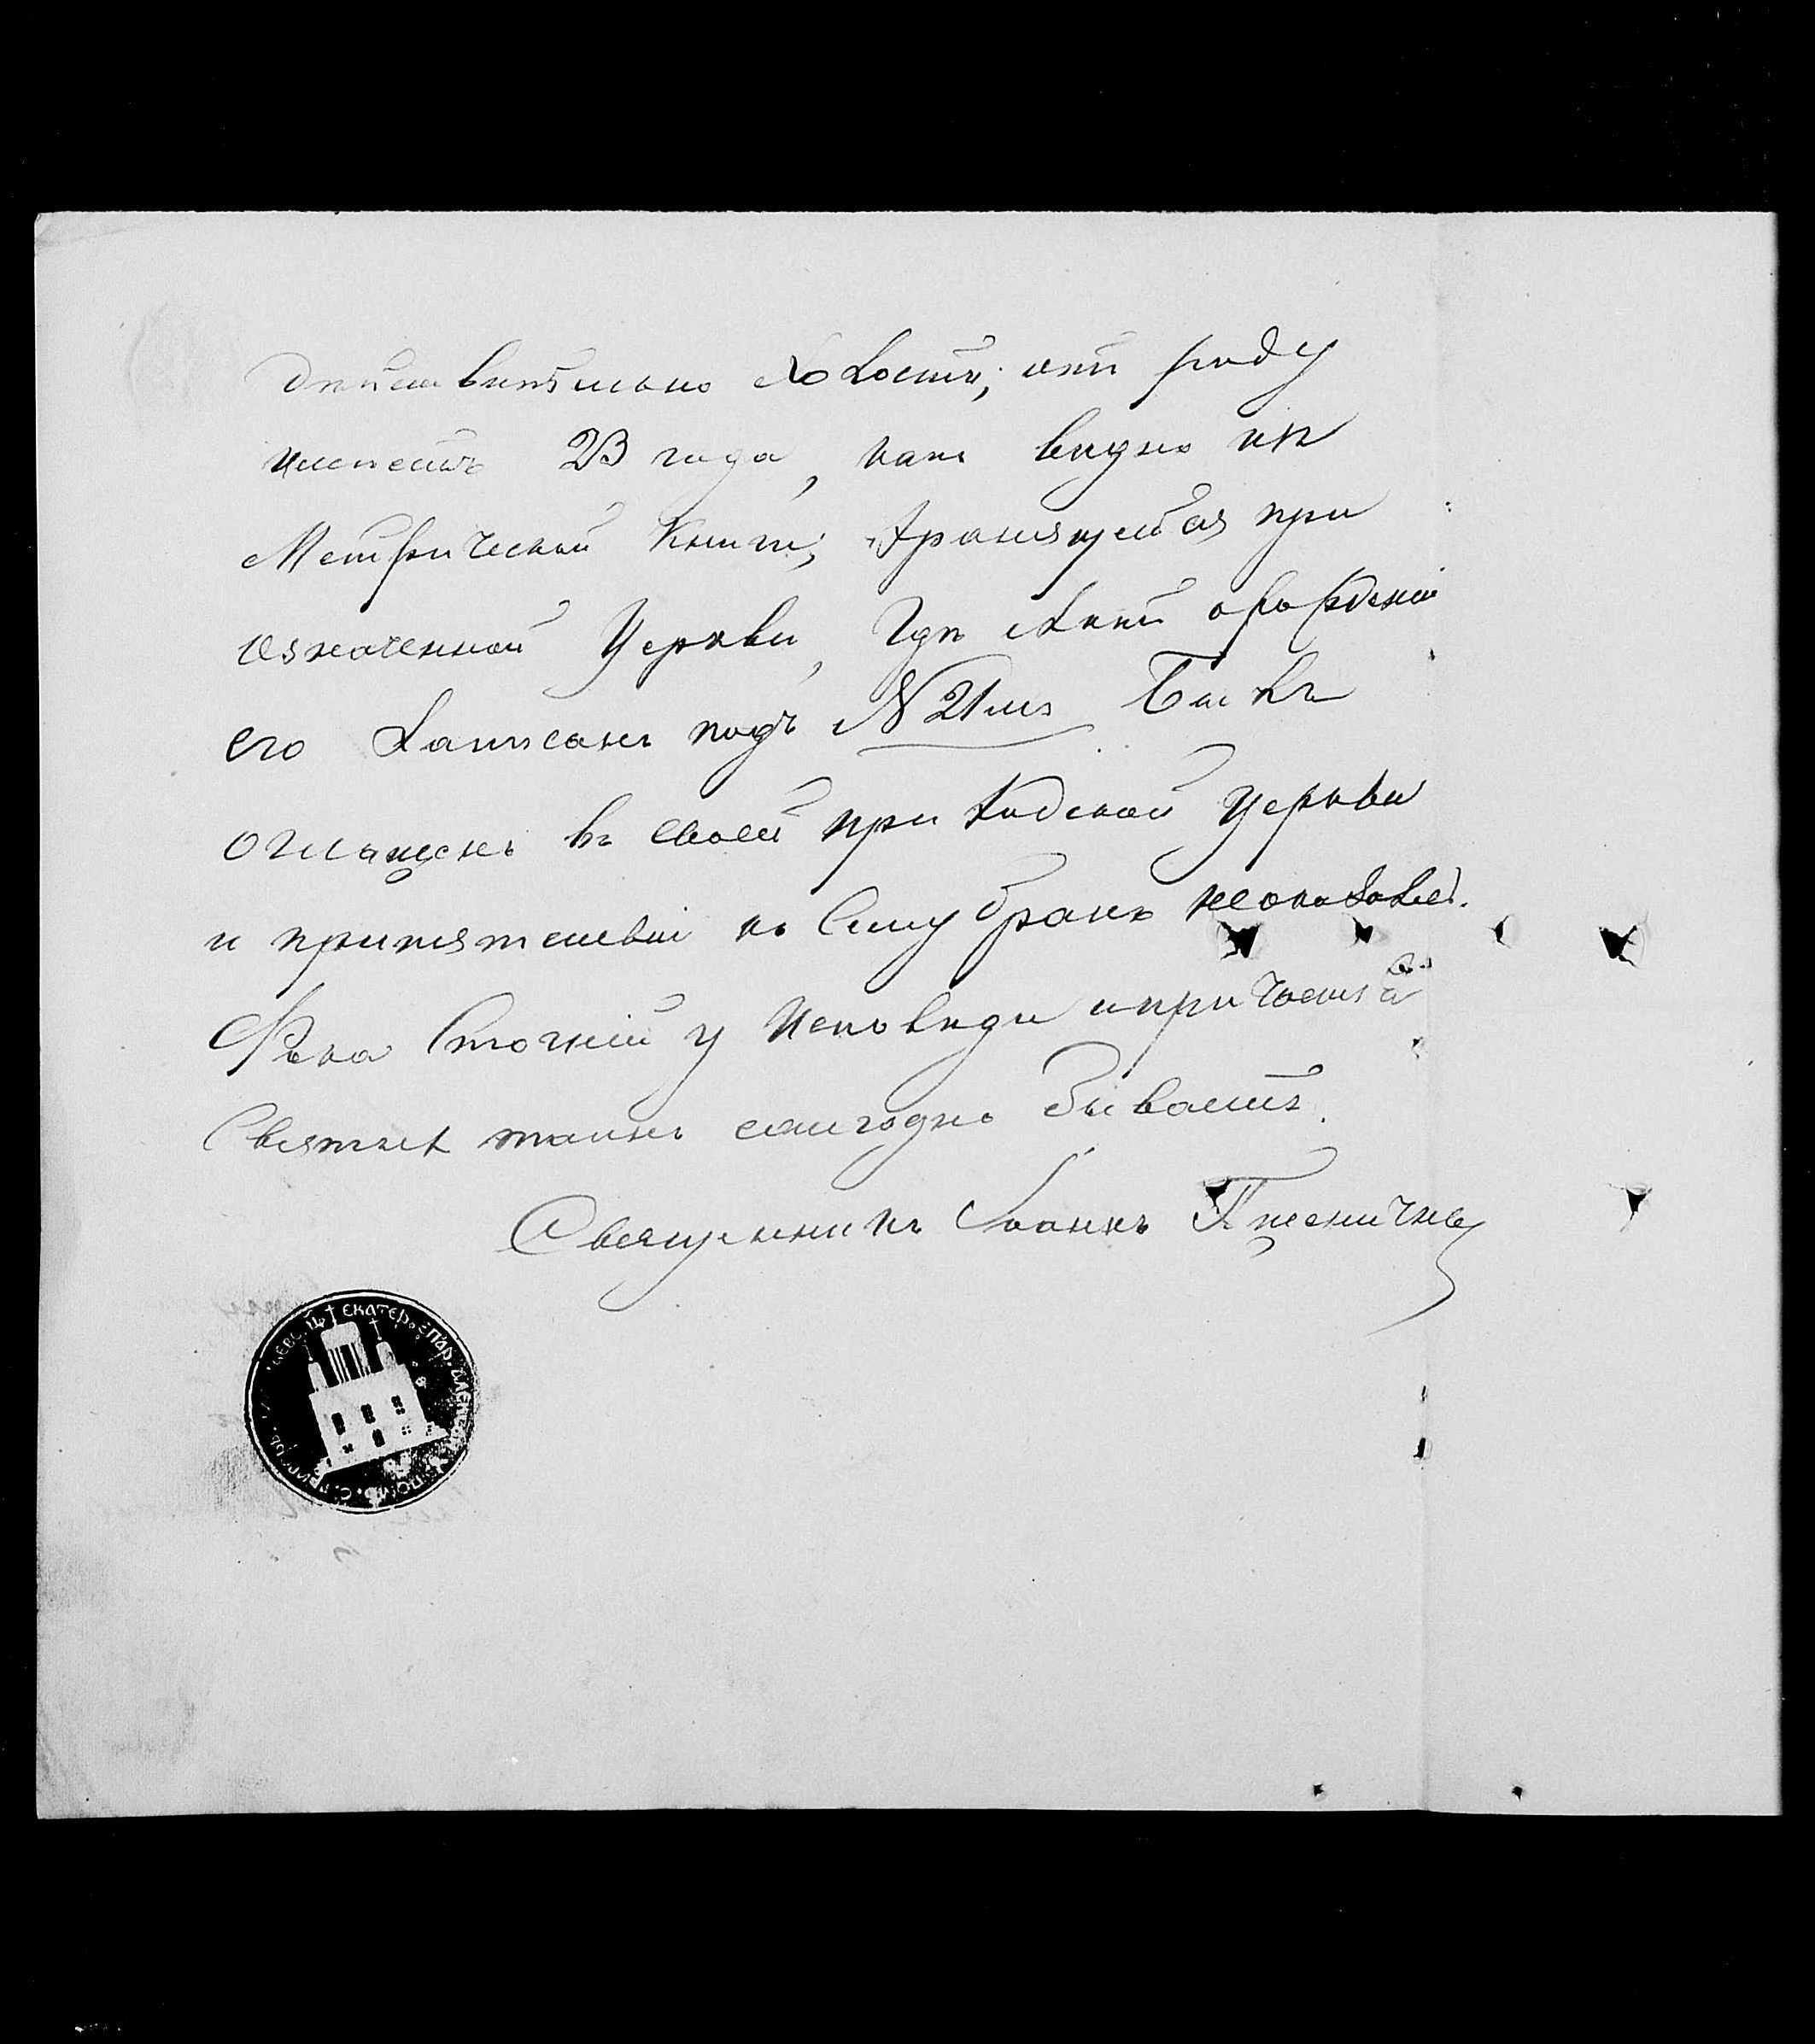 действительно холостъ; отъ роду
имѣетъ 23 года, какъ видно изъ
Метрической Книги, хранящейся при
означенной Церкви, Гдѣ актъ о рожденіи
его записанъ подъ № 21мъ Былъ
оглашенъ въ своей приходской Церкви
и препятствій къ сему браку неоказалось.
у Исповѣди и при
Святыхъ таинъ ежегодно бываетъ.
Священникъ Іоаннъ Пшеничны
ЕКАТЕР. ЕПАР.